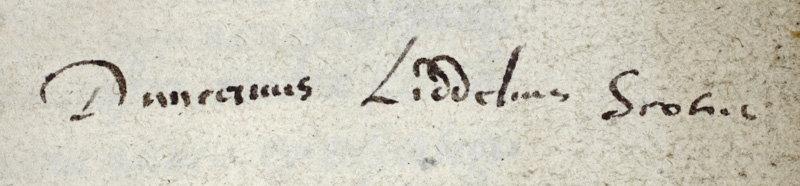 Duncanus Liddelius Scotus